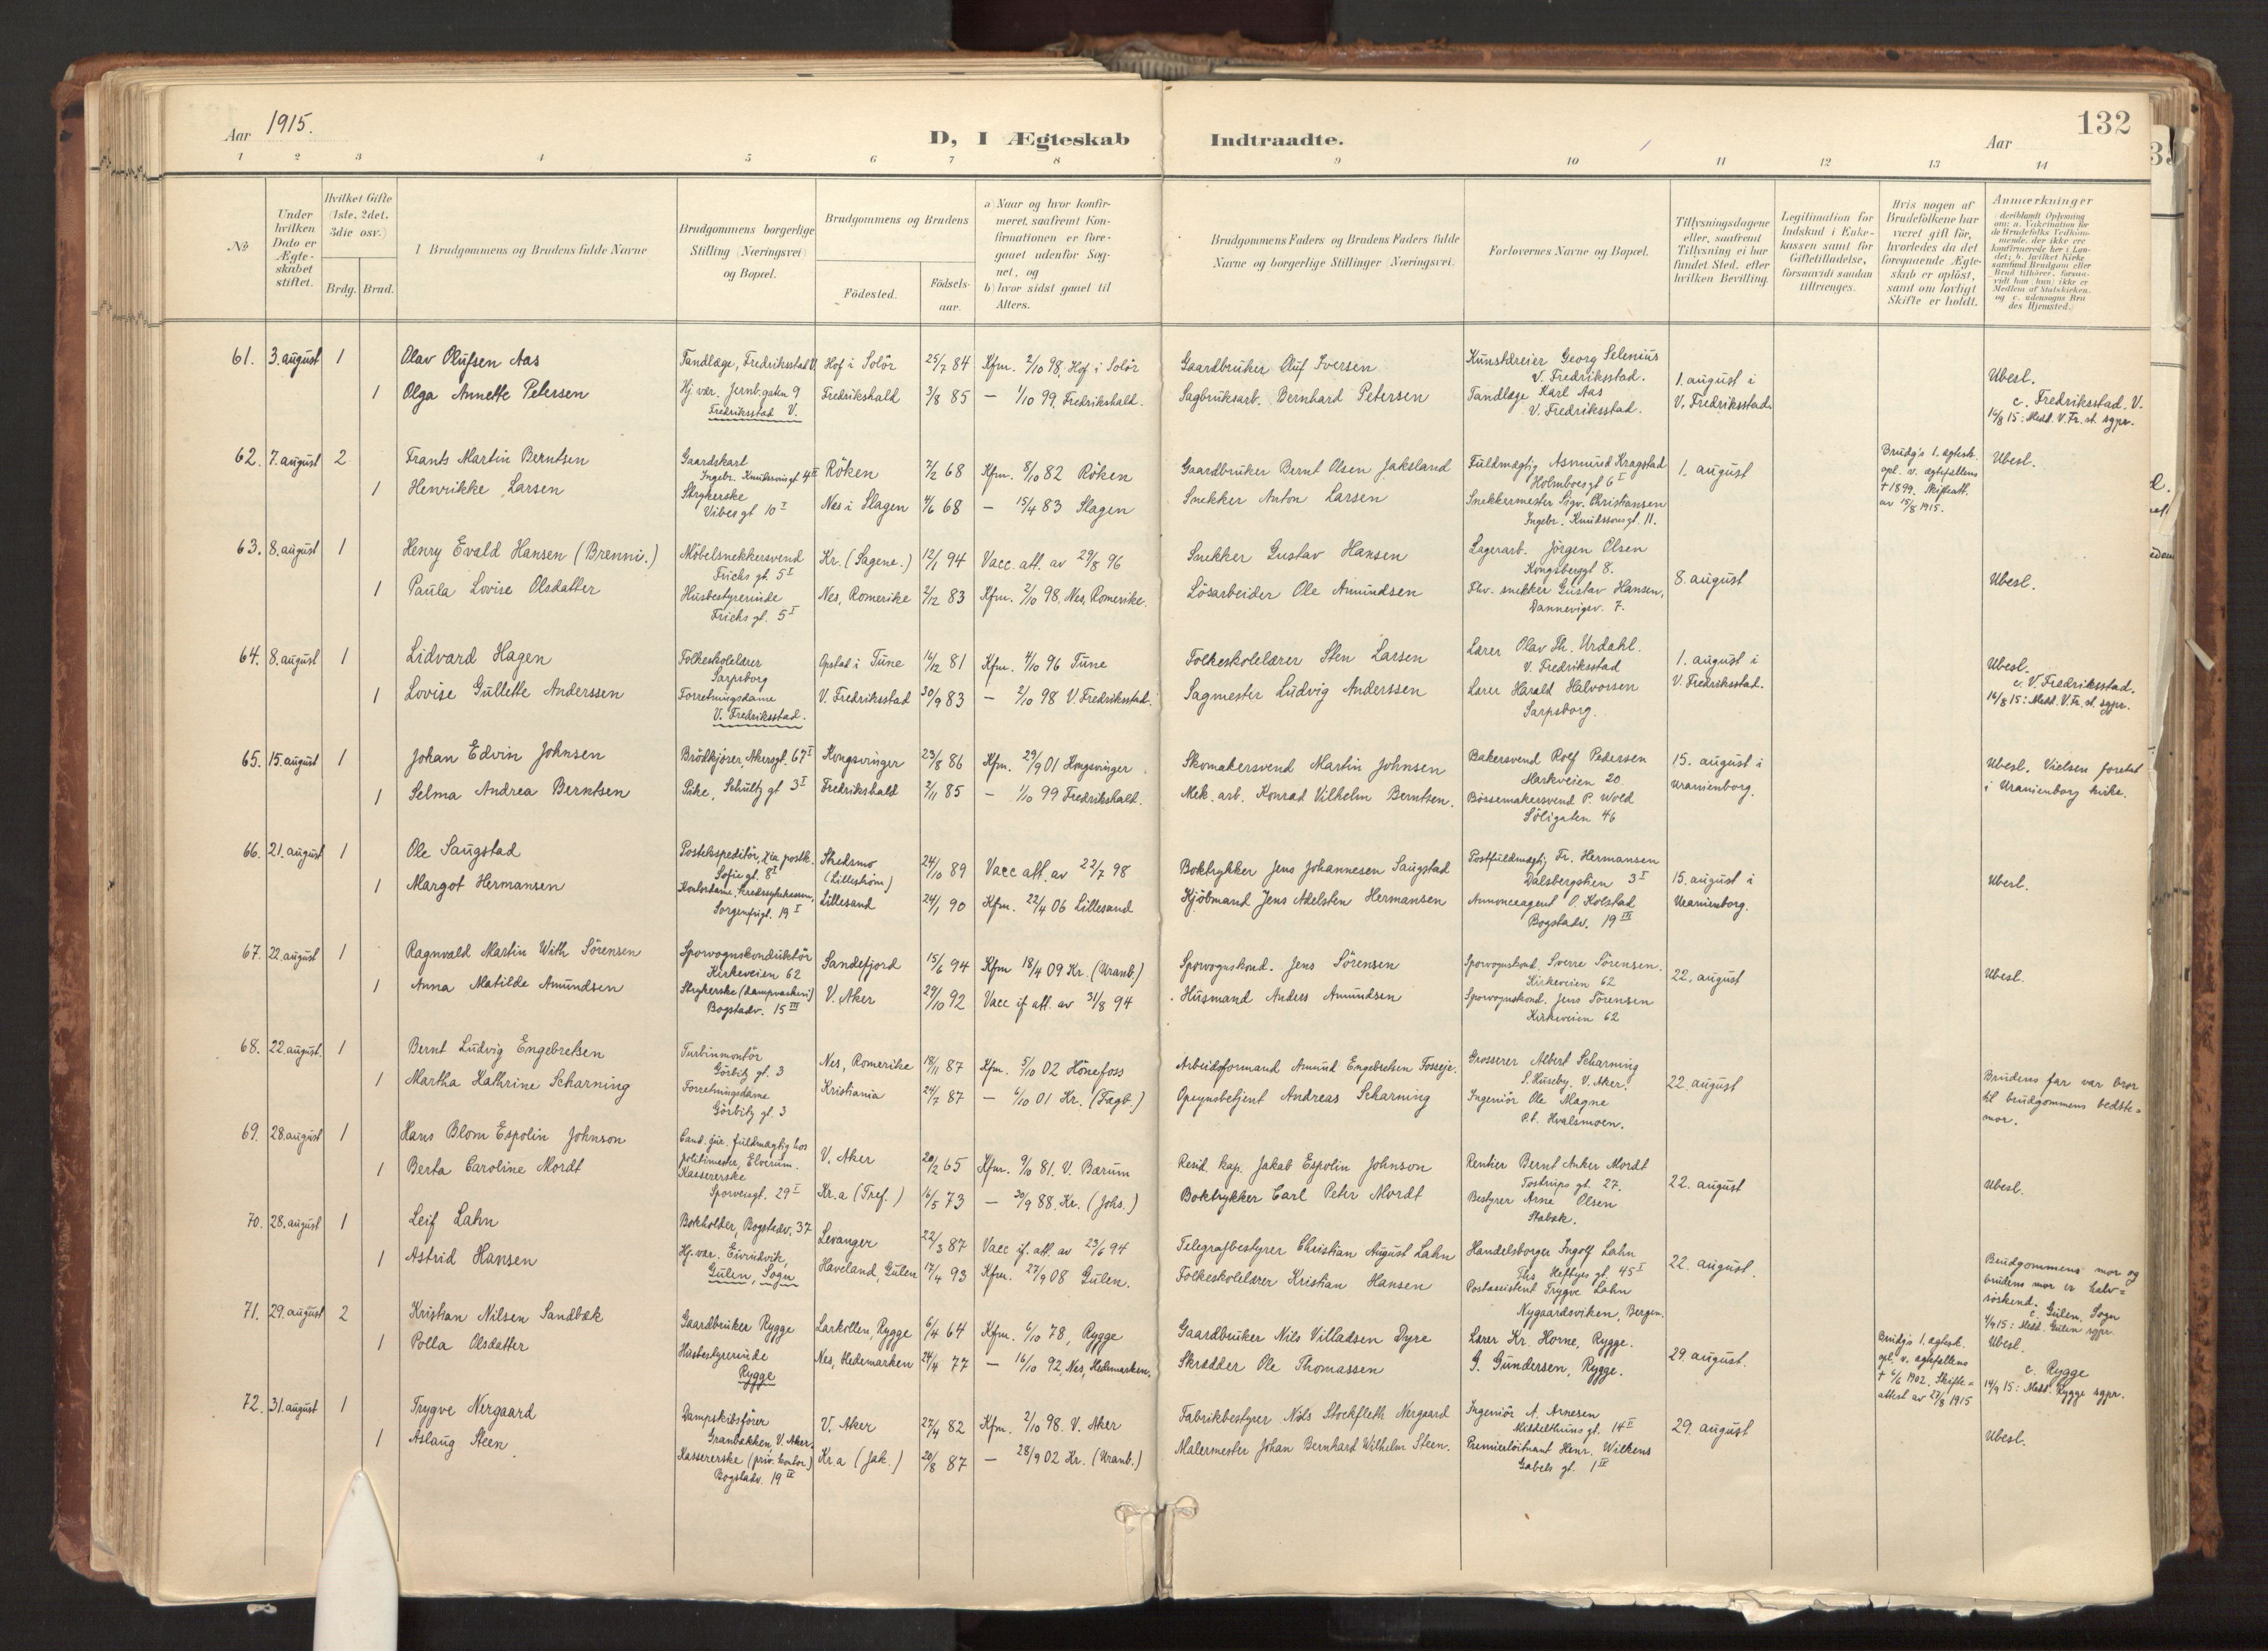 Aar 1915.
D, I Ægteskab Indtraadte.
Aar
132
1 2 3 4 5 6 7 8 9 10 11 12 13 14
No
Under hvilken Dato er Ægteskabet stiftet.
Hvilket Gifte (1ste, 2det, 3die osv.)
Brdg. Brud.
1 Brudgommens og Brudens fulde Navne
Brudgommens borgerlige Stilling (Næringsvei) og Bopæl.
Brudgommens og Brudens
Födested.
Födselsaar.
a) Naar og hvor konfirmeret, saafremt Konfirmationen er foregaaet udenfor Sognet, og
b) hvor sidst gaaet til Alters.
Brudgommens Faders og Brudens Faders fulde Navne og borgerlige Stillinger (Næringsvei).
Forlovernes Navne og Bopæl.
Tillysningsdagene eller, saafremt Tillysning ei har fundet Sted, efter hvilken Bevilling.
Legitimation for Indskud i Enkekassen samt for Giftetilladelse, forsaavidt saadan tiltrænges.
Hvis nogen af Brudefolkene har været gift för, hvorledes da det foregaaende Ægteskab er oplöst, samt om lovligt Skifte er holdt.
Anmærkninger
(deriblandt Oplysning om: a. Vakcination for de Brudefolks Vedkommende, der ikke ere konfirmerede her i Landet; b. hvilket Kirkesamfund Brudgom eller Brud tilhörer, forsaavidt han (hun) ikke er Medlem af Statskirken, og c. udensogns Brudes Hjemsted.)
61. 3. august 1 Olav Olufsen Aas Tandlæge, Fredriksstad V. Hof i Solör 25/7 84 Kfm. 2/10 98, Hof i Solör Gaardbruker Oluf Iversen Kunstdreier Georg Selenius V. Fredriksstad.
1 Olga Annette Petersen Hj. vær. Jernb.gaten 9 Fredriksstad V. Fredrikshald 3/8 85 — 1/10 99, Fredrikshald. Sagbruksarb. Bernhard Petersen Tandlæge Karl Aas V. Fredriksstad. 1. august i V. Fredriksstad. Ubesl. c. Fredriksstad. V. 16/8 15: Medd. V. Fr.st. sgpr.
62. 7. august 2 Frants Martin Berntsen Gaardskarl Ingebr. Knudssonsgt 4 II Röken 7/2 68 Kfm. 8/10 82 Röken Gaardbruker Bernt Olsen Jaksland Fuldmægtig Asmund Kragstad Holmboesgt 6 I 1. august Brudg's 1. ægtesk. opl. v. ægtefællens + 1899. Skifteatt. av 15/8 1915. Ubesl.
1 Henrikke Larsen Strykerske Vibesgt 10 I Nes i Slagen 4/6 68 — 15/4 83 Slagen Snekker Anton Larsen Snekkermester Sigv. Christiansen Ingebr. Knudssonsgt. 11.
63. 8. august 1 Henry Evald Hansen (Brenni.) Möbelsnekkersvend Frichs gt. 5 I Kr. (Sagene.) 12/1 94 Vacc. att. av 29/8 96 Snekker Gustav Hansen Lagerarb. Jörgen Olsen Kongsberggt 8.
1 Paula Lovise Olsdatter Husbestyrerinde Frichs gt. 5 I Nes, Romerike 2/12 83 Kfm. 2/10 98, Nes, Romerike. Lösarbeider Ole Amundsen Fhv. snekker Gustav Hansen, Dannevigsv. 7. 8. august Ubesl.
64. 8. august 1 Lidvard Hagen Folkeskolelærer Sarpsborg Opstad i Tune 16/12 81 Kfm. 4/10 96 Tune Folkeskolelærer Sten Larsen Lærer Olav Th. Urdahl. V. Fredriksstad
1 Lovise Gullette Anderssen Forretningsdame V. Fredriksstad. V. Fredriksstad 30/9 83 — 2/10 98 V. Fredriksstad. Sagmester Ludvig Anderssen Lærer Harald Halvorsen Sarpsborg. 1. august i V. Fredriksstad. Ubesl. c. V. Fredriksstad. 16/8 15: Medd. V. Fr. st. sgpr.
65. 15. august 1 Johan Edvin Johnsen Brödkjörer, Akersgt. 67 I Kongsvinger 23/8 86 Kfm. 29/9 01 Kongsvinger Skomakersvend Martin Johnsen Bakersvend Rolf Pedersen Markveien 20
1 Selma Andrea Berntsen Pike, Schultz gt 3 I Fredrikshald 2/11 85 — 1/10 99 Fredrikshald. Mek. arb. Konrad Vilhelm Berntsen. Börsemakersvend P. Wold Söligaten 46 15. august i Uranienborg. Ubesl. Vielsen foretat i Uranienborg kirke.
66. 21. august 1 Ole Saugstad Postekspeditör, Kr.a postk. Sofies gt. 8 I Skedsmo (Lilleström) 24/10 89 Vacc. att. av 22/7 98 Boktrykker Jens Johannesen Saugstad Postfuldmægtig Fr. Hermansen Dalsbergstien 3 I
1 Margot Hermansen Kontordame, kredssykekassen, Sorgenfrigt. 19 I Lillesand 24/1 90 Kfm. 22/4 06 Lillesand Kjöbmand Jens Adelsten Hermansen Annonceagent O. Kolstad Bogstadv. 19 III 15. august i Uranienborg. Ubesl.
67. 22. august 1 Ragnvald Martin With Sörensen Sporvognskonduktör Kirkeveien 62 Sandefjord 15/6 94 Kfm 18/4 09 Kr. (Uranb.) Sporvognskond. Jens Sörensen Sporvognskond. Sverre Sörensen. Kirkeveien 62
1 Anna Matilde Amundsen Strykerske (dampvaskeri) Bogstadv. 15 III V. Aker 29/10 92 Vacc if. att. av 31/8 94 Husmand Anders Amundsen Sporvognskond. Jens Sörensen Kirkeveien 62 22. august Ubesl.
68. 22. august. 1 Bernt Ludvig Engebretsen Turbinmontör Görbitz gt. 3 Nes, Romerike 18/11 87 Kfm. 5/10 02 Hönefoss Arbeidsformand Amund Engebretsen Fosseje. Grosserer Albert Scharning S. Huseby, V. Aker.
1 Martha Kathrine Scharning Forretningsdame Görbitz gt. 3 Kristiania 24/7 87 — 6/10 01 Kr. (Fagb.) Opsynsbetjent Andreas Scharning Ingeniör Ole Magne P.t. Hvalsmoen. 22. august Brudens far var bror til brudgommens bedstemor.
69. 28. august 1 Hans Blom Espolin Johnson Cand. jur. fuldmægtig hos politimester, Elverum. V. Aker 20/2 65 Kfm. 9/10 81. V. Bærum Resid. kap. Jakob Espolin Johnson Rentier Bernt Anker Mordt Tostrups gt. 27.
1 Berta Caroline Mordt Kassererske Sporveisgt. 29 I Kr.a (Tref.) 16/5 73 — 30/9 88. Kr. (Johs.) Boktrykker Carl Peter Mordt Bestyrer Arne Olsen Stabæk. 22. august Ubesl.
70. 28. august 1 Leif Lahn Bokholder, Bogstadv. 37 Levanger 22/3 87 Vacc if. att. av 23/6 94 Telegrafbestyrer Christian August Lahn Handelsborger Ingolf Lahn Ths. Heftyes gt. 45 I
1 Astrid Hansen Hj. vær. Eivindvik, Gulen, Sogn Haveland, Gulen 17/4 93 Kfm. 27/9 08 Gulen. Folkeskolelærer Kristian Hansen Postassistent Trygve Lahn Nygaardsviken, Bergen. 22. august. Brudgommens mor og brudens mor er halvsöskend. c. Gulen, Sogn 1/9 15: Medd. Gulen sgpr.
71. 29. august 2 Kristian Nilsen Sandbæk Gaardbruker Rygge Larkollen, Rygge 6/4 64 Kfm. 6/10 78, Rygge Gaardbruker Nils Villadsen Dyre Lærer Kr. Horne, Rygge.
1 Polla Olsdatter Husbestyrerinde Rygge Nes, Hedemarken 24/4 77 — 16/10 92, Nes, Hedemarken. Skrædder Ole Thomassen G. Gundersen, Rygge. 29. august. Brudg's 1. ægtesk. opl. v. ægtefællens + 6/6 1902. Skifteattest av 27/8 1915 Ubesl. c. Rygge 14/9 15: Medd. Rygge sgpr.
72. 31. august 1 Trygve Nergaard Dampskibsförer Granbakken, V. Aker. V. Aker 27/4 82 Kfm. 2/10 98. V. Aker Fabrikbestyrer Nils Stockfleth Nergaard Ingeniör A. Arnesen Middelthuns gt. 14 II 29. august
1 Aslaug Steen Kassererske (priv. kontor) Bogstadv. 19 II Kr.a (Jak.) 20/8 87 — 28/9 02 Kr. (Uranb.) Malermester Johan Bernhard Wilhelm Steen. Premierlöitnant Henr. Wilkens Gabels gt. 1 II Ubesl.